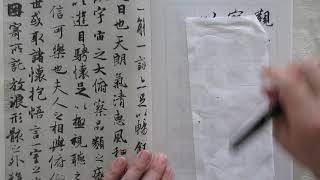 觀
宇
以
一觴一詠亦足以暢叙
日也天朗氣清惠風和
宇宙之大俯察品類之盛
以遊目騁懷足以極視聽之
信可樂也夫人之相與俯仰
世或取諸懷抱悟言一室之
因寄所託放浪形骸之外